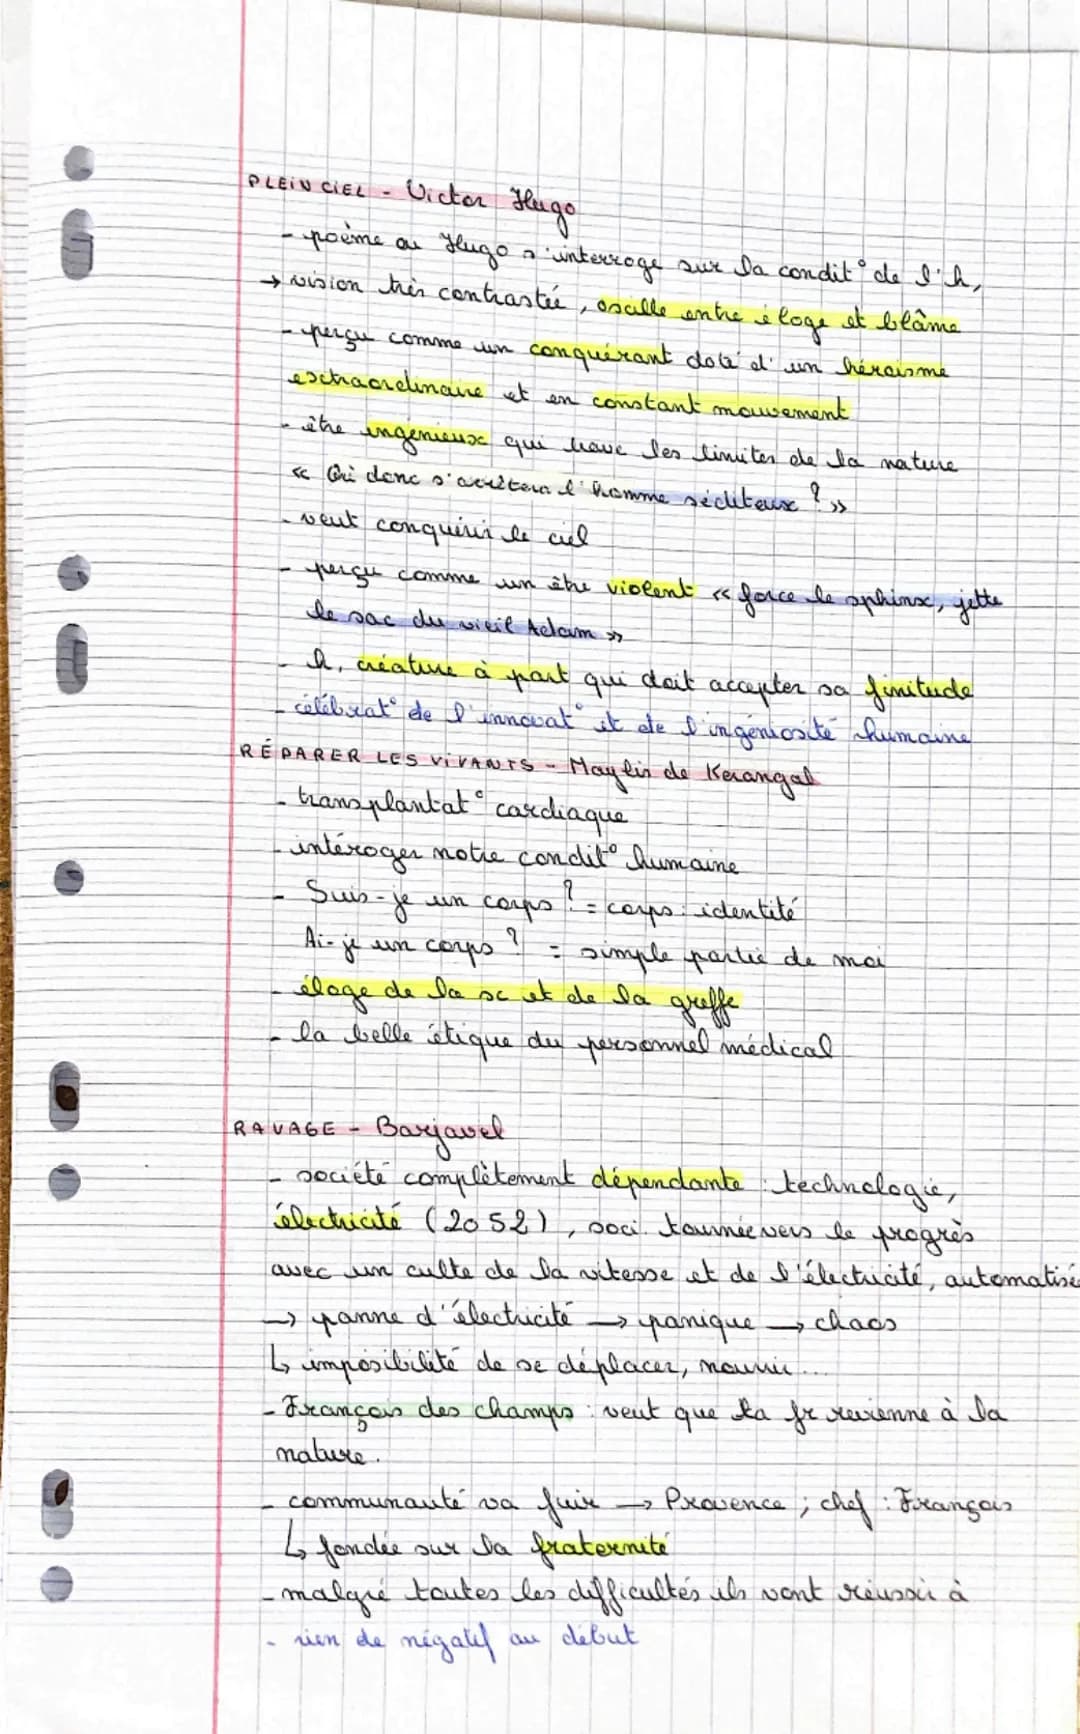 PLEIN CIEL - Victor Hugo
- poème ou Hugo s'interroge sur la condit° de l'h,
→ vision très contrastée, oscille entre éloge et blâme
- perçu comme un conquérant doté d'un héroïsme
extraordinaire et en constant mouvement
- être ingénieux qui brave les limites de la nature
« Qui donc s'arrêtera l'homme séditeux ? »
- veut conquérir le ciel
- perçu comme un être violent « force le sphinx, jette
le sac du vieil Adam »
- h, créature à part qui doit accepter sa finitude
- célébrat° de l'innovat° et de l'ingéniosité humaine
RÉPARER LES VIVANTS - Maylis de Kerangal
- transplantat° cardiaque
- intéroger notre condit° humaine
- Suis-je un corps ? = corps : identité
Ai-je un corps ? = simple partie de moi
- éloge de la sc et de la greffe
- la belle étique du personnel médical
RAVAGE - Barjavel
- société complètement dépendante : technologie,
électricité (2052), soci. tournée vers le progrès
avec un culte de la vitesse et de l'électricité, automatisé
→ panne d'électricité → panique → chaos
↳ imposibilité de se déplacer, nourrir...
- François des champs : veut que la fr revienne à la
nature.
- communauté va fuir → Provence ; chef : François
↳ fondée sur la fraternité
- malgré toutes les difficultés ils vont réussir à
- rien de négatif au début